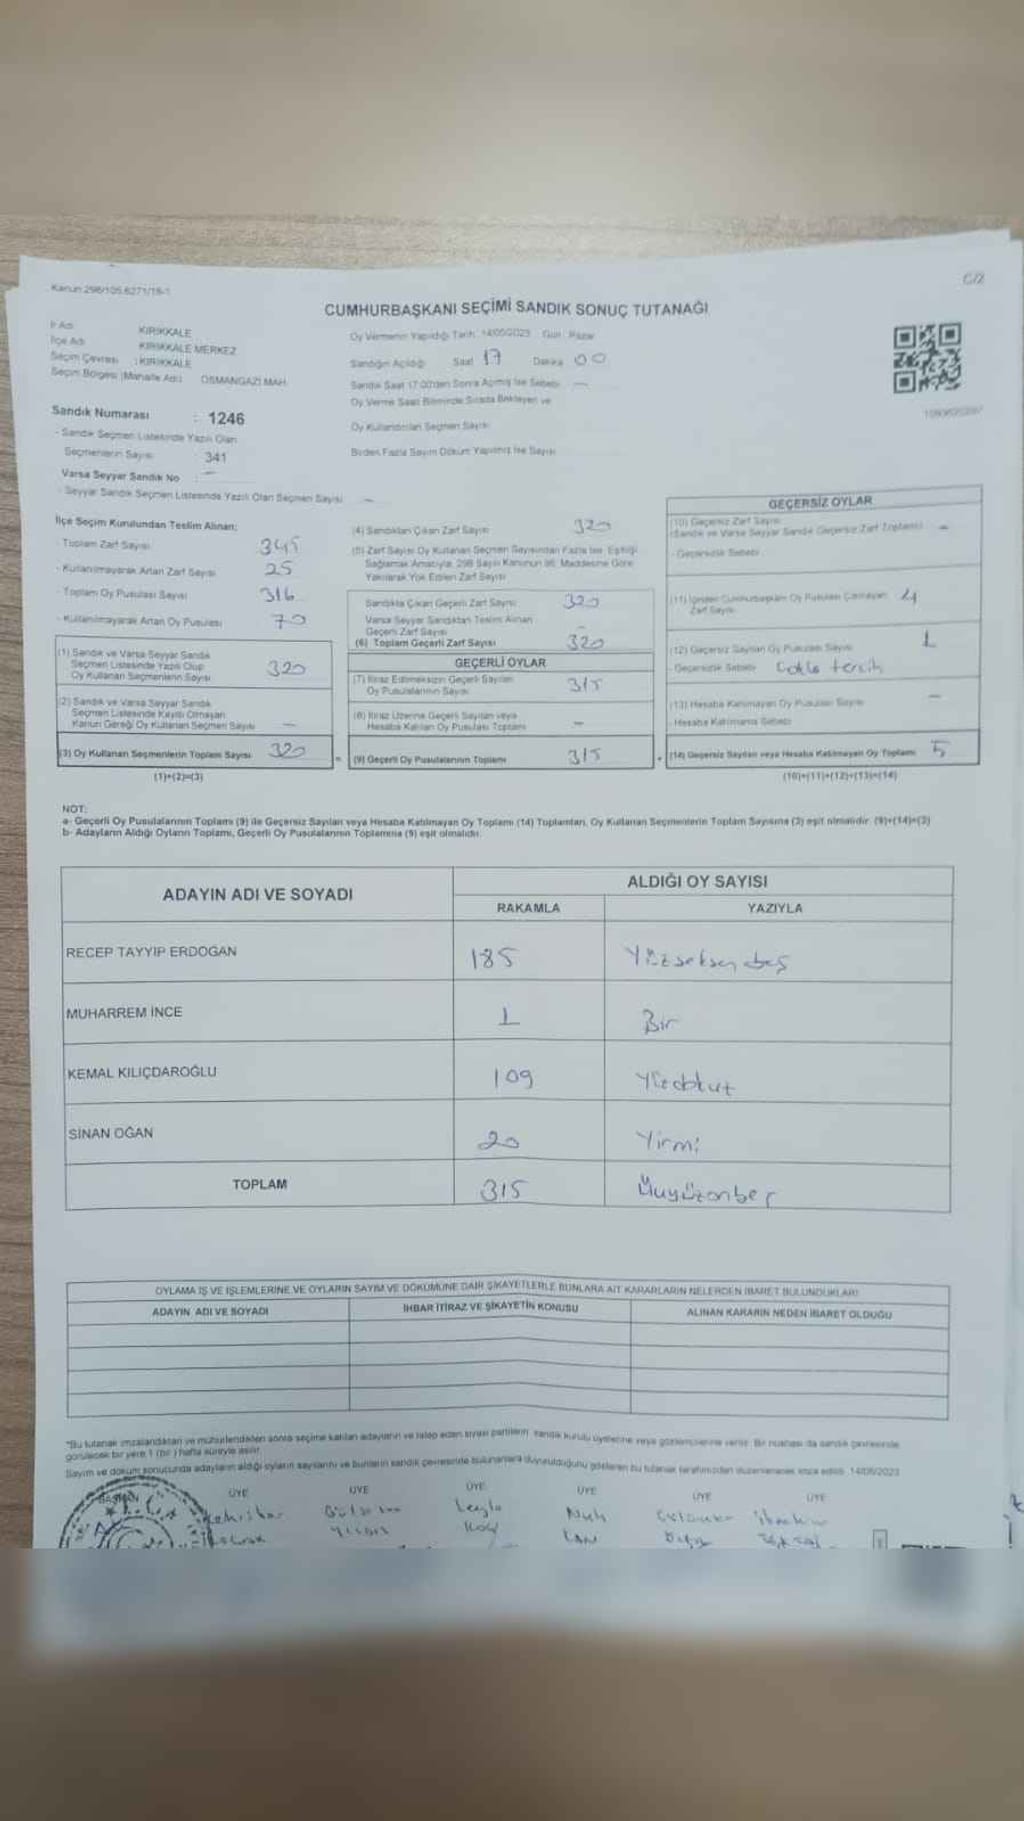 Kanun 298/105 6271/16-1
C/2
CUMHURBAŞKANI SEÇİMİ SANDIK SONUÇ TUTANAĞI
İl Adı KIRIKKALE
İlçe Adı KIRIKKALE MERKEZ
Seçim Çevresi : KIRIKKALE
Seçim Bölgesi (Mahalle Adı) OSMANGAZİ MAH.
Oy Vermenin Yapıldığı Tarih: 14/05/2023 Gün: Pazar
Sandığın Açıldığı Saat 17 Dakika 00
Sandık Saat 17.00'den Sonra Açılmış İse Sebebi —
Oy Verme Saati Bitiminde Sırada Bekleyen ve
Oy Kullandırılan Seçmen Sayısı
Birden Fazla Sayım Döküm Yapılmış İse Sayısı
Sandık Numarası : 1246
- Sandık Seçmen Listesinde Yazılı Olan
Seçmenlerin Sayısı 341
Varsa Seyyar Sandık No : —
- Seyyar Sandık Seçmen Listesinde Yazılı Olan Seçmen Sayısı —
İlçe Seçim Kurulundan Teslim Alınan;
- Toplam Zarf Sayısı 345
- Kullanılmayarak Artan Zarf Sayısı 25
- Toplam Oy Pusulası Sayısı 316
- Kullanılmayarak Artan Oy Pusulası 70
(1) Sandık ve Varsa Seyyar Sandık
Seçmen Listesinde Yazılı Olup
Oy Kullanan Seçmenlerin Sayısı 320
(2) Sandık ve Varsa Seyyar Sandık
Seçmen Listesinde Kayıtlı Olmayan
Kanun Gereği Oy Kullanan Seçmen Sayısı —
(3) Oy Kullanan Seçmenlerin Toplam Sayısı 320
(1)+(2)=(3)
(4) Sandıktan Çıkan Zarf Sayısı 320
(5) Zarf Sayısı Oy Kullanan Seçmen Sayısından Fazla İse, Eşitliği
Sağlamak Amacıyla, 298 Sayılı Kanunun 98. Maddesine Göre
Yakılarak Yok Edilen Zarf Sayısı
Sandıkta Çıkan Geçerli Zarf Sayısı 320
Varsa Seyyar Sandıktan Teslim Alınan
Geçerli Zarf Sayısı —
(6) Toplam Geçerli Zarf Sayısı 320
GEÇERLİ OYLAR
(7) İtiraz Edilmeksizin Geçerli Sayılan
Oy Pusulalarının Sayısı 315
(8) İtiraz Üzerine Geçerli Sayılan veya
Hesaba Katılan Oy Pusulası Toplamı —
(9) Geçerli Oy Pusulalarının Toplamı 315
GEÇERSİZ OYLAR
(10) Geçersiz Zarf Sayısı
(Sandık ve Varsa Seyyar Sandık Geçersiz Zarf Toplamı) —
- Geçersizlik Sebebi
(11) İçinden Cumhurbaşkanı Oy Pusulası Çıkmayan 4
Zarf Sayısı
(12) Geçersiz Sayılan Oy Pusulası Sayısı 1
- Geçersizlik Sebebi Çoklu tercih
(13) Hesaba Katılmayan Oy Pusulası Sayısı —
- Hesaba Katılmama Sebebi
(14) Geçersiz Sayılan veya Hesaba Katılmayan Oy Toplamı 5
(10)+(11)+(12)+(13)=(14)
NOT:
a- Geçerli Oy Pusulalarının Toplamı (9) ile Geçersiz Sayılan veya Hesaba Katılmayan Oy Toplamı (14) Toplamları, Oy Kullanan Seçmenlerin Toplam Sayısına (3) eşit olmalıdır. (9)+(14)=(3)
b- Adayların Aldığı Oyların Toplamı, Geçerli Oy Pusulalarının Toplamına (9) eşit olmalıdır.
ADAYIN ADI VE SOYADI ALDIĞI OY SAYISI
RAKAMLA YAZIYLA
RECEP TAYYİP ERDOĞAN 185 Yüzseksenbeş
MUHARREM İNCE 1 Bir
KEMAL KILIÇDAROĞLU 109 Yüzdokuz
SİNAN OĞAN 20 Yirmi
TOPLAM 315 Üçyüzonbeş
OYLAMA İŞ VE İŞLEMLERİNE VE OYLARIN SAYIM VE DÖKÜMÜNE DAİR ŞİKAYETLERLE BUNLARA AİT KARARLARIN NELERDEN İBARET BULUNDUKLARI
ADAYIN ADI VE SOYADI İHBAR İTİRAZ VE ŞİKAYETİN KONUSU ALINAN KARARIN NEDEN İBARET OLDUĞU
*Bu tutanak imzalandıktan ve mühürlendikten sonra seçime katılan adayların ve talep eden siyasi partilerin sandık kurulu üyelerine veya gözlemcilerine verilir. Bir nüshası da sandık çevresinde
görülecek bir yere 1 (bir) hafta süreyle asılır.
Sayım ve döküm sonucunda adayların aldığı oyların sayılarını ve bunların sandık çevresinde bulunanlara duyurulduğunu gösteren bu tutanak tarafımızdan düzenlenerek imza edildi. 14/05/2023
BAŞKAN ÜYE ÜYE ÜYE ÜYE ÜYE ÜYE
Leyla Nuh
Koç